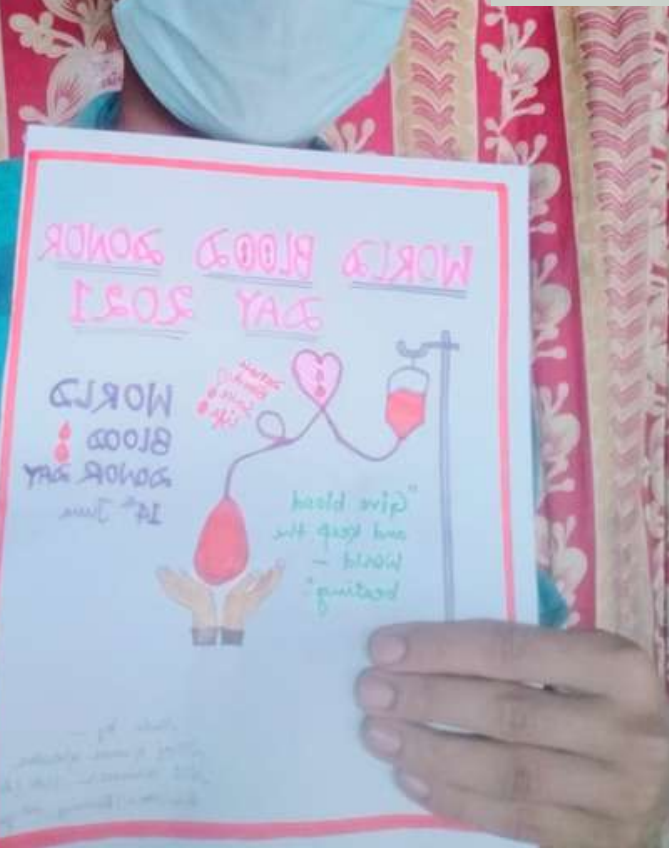 WORLD BLOOD DONOR
DAY 2021
WORLD
BLOOD
DONOR DAY
14th June
Save
Life
"Give blood
and keep the
World -
beating"